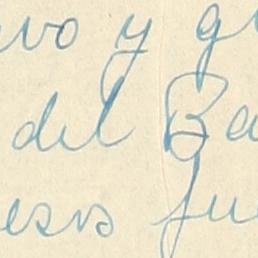 vo y g
del Ba
esos fue